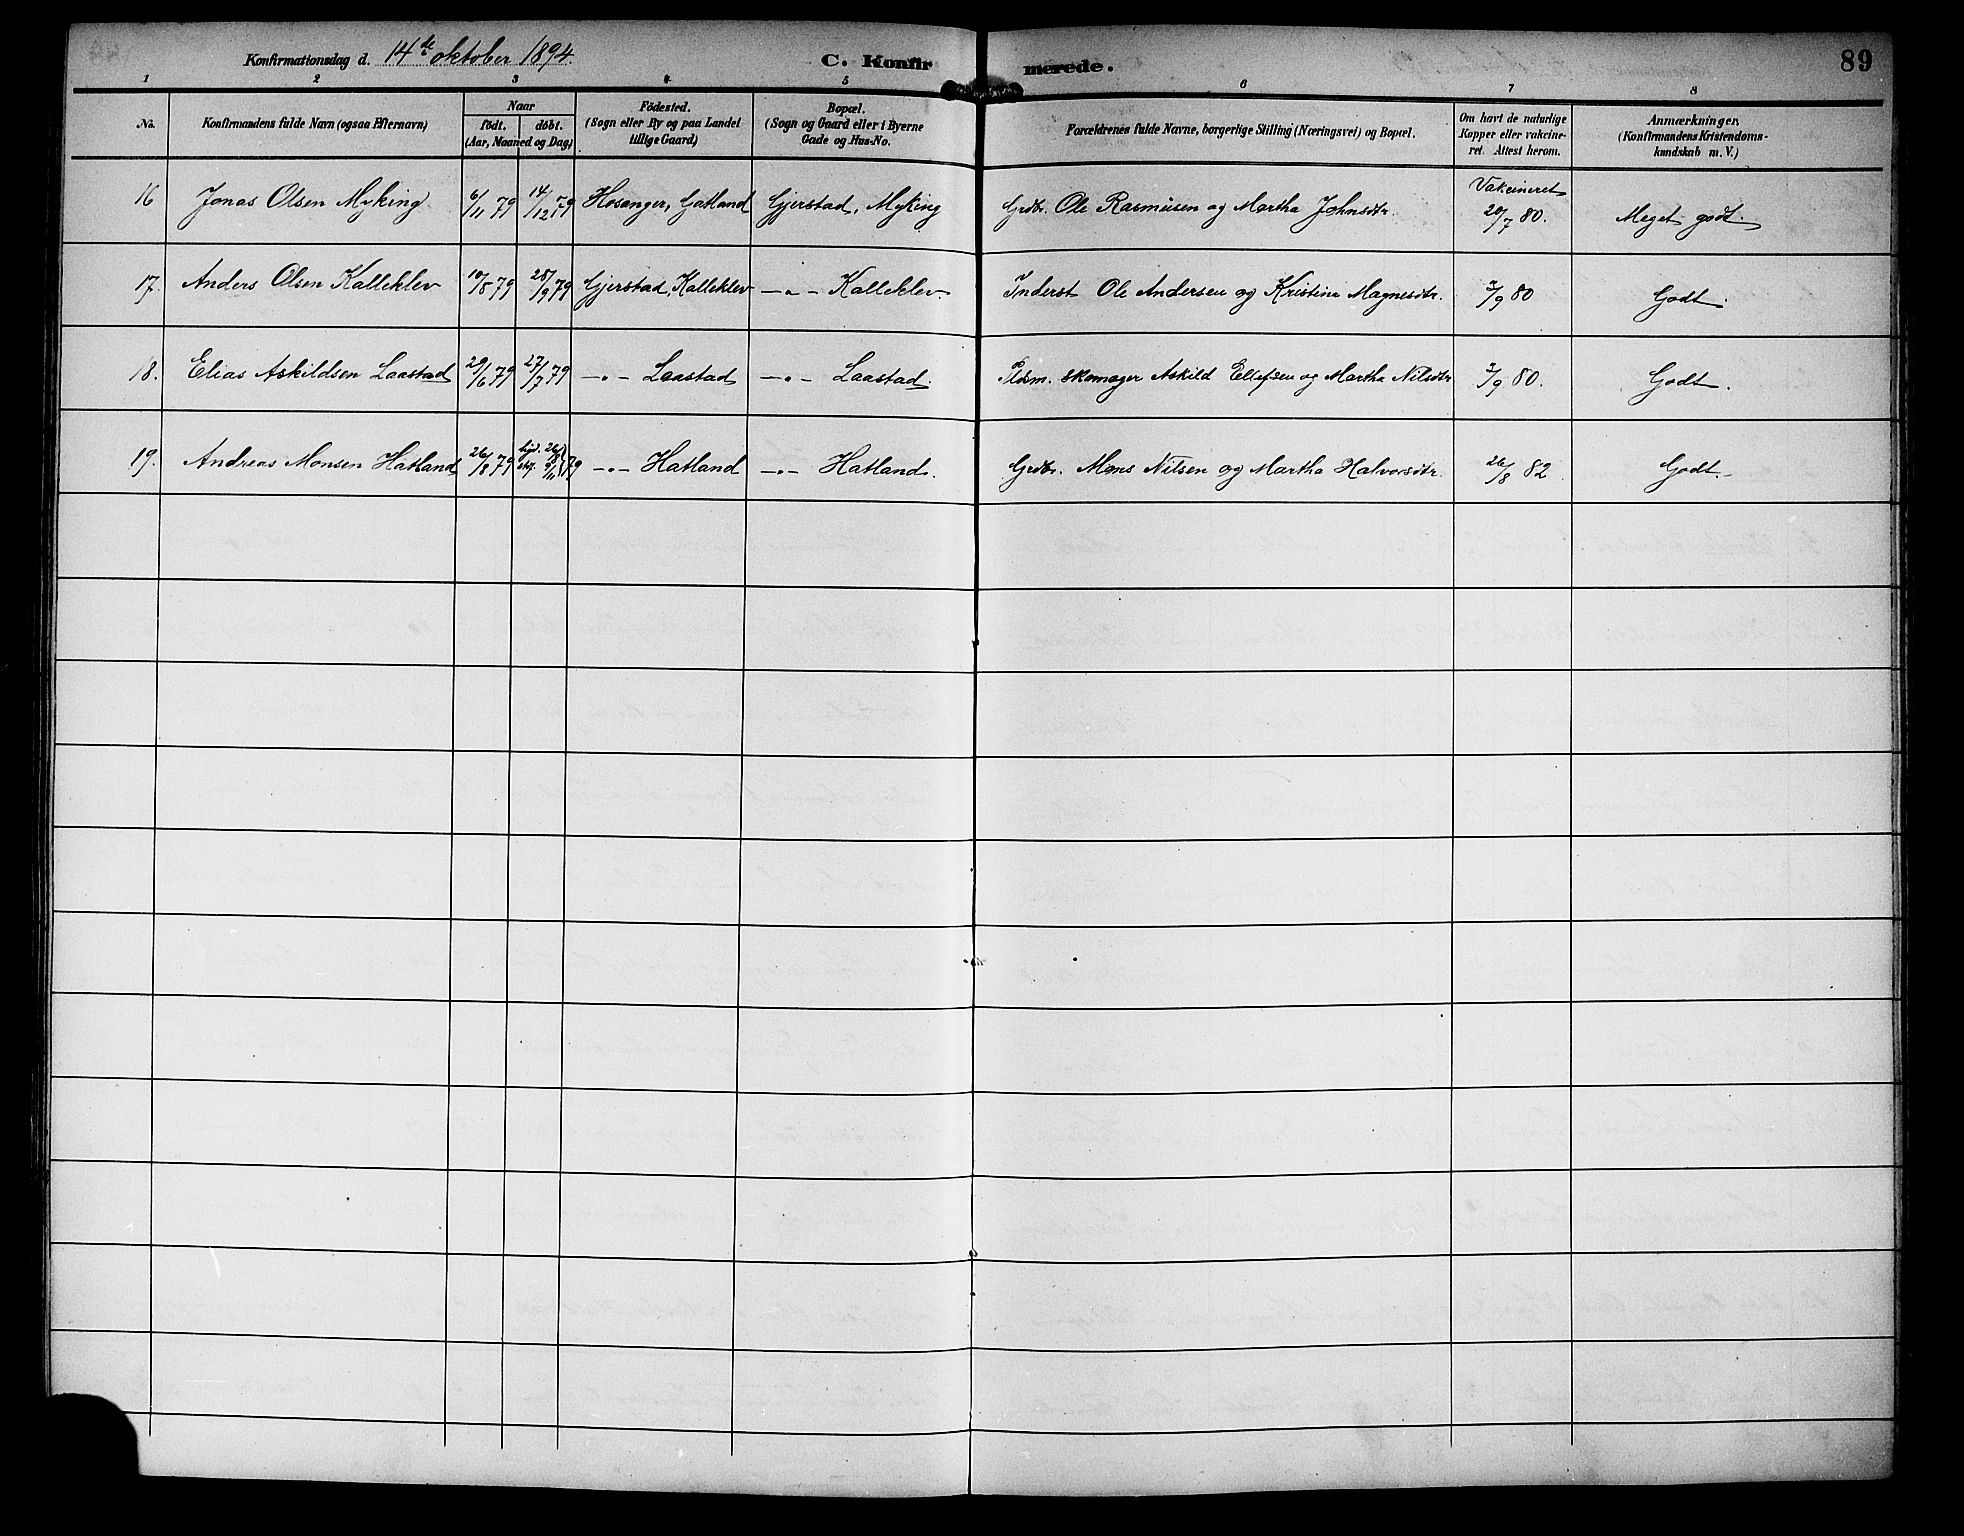 Konfirmationsdag d. 14de oktober 1894.
C. Konfirmerede.
89
1 2 3 4 5 6 7 8
No.
Konfirmandens fulde Navn (ogsaa Efternavn)
Naar
født. døbt.
(Aar, Maaned og Dag)
Fødested.
(Sogn eller By og paa Landet
tillige Gaard)
Bopæl.
(Sogn og Gaard eller i Byerne
Gade og Hus-No.
Forældrenes fulde Navne, borgerlige Stilling (Næringsvei) og Bopæl.
Om havt de naturlige
Kopper eller vakcine-
ret. Attest herom.
Anmærkninger.
(Konfirmandens Kristendoms-
kundskab m. V.)
16 Jonas Olsen Myking 6/11 79 14/12 79 Hosanger, Gatland Gjerstad, Myking Grdbr. Ole Rasmusen og Martha Johnsdtr. Vakcineret 20/7 80. Meget godt.
17. Anders Olsen Kalleklev 10/8 79 28/9 79 Gjerstad, Kalleklev —„— Kalleklev. Inderst Ole Andersen og Kristine Magnesdtr. 2/9 80 Godt.
18. Elias Askildsen Laastad 29/6 79 27/7 79 —„— Laastad —„— Laastad. Pldsm. skomager Askild Ellefsen og Martha Nilsdtr 2/9 80. Godt.
19. Andreas Monsen Hatland 26/8 79 hjd. 26/8 stf. 9/11 } 79 —„— Hatland —„— Hatland. Grdbr. Mons Nilsen og Martha Halvorsdtr. 26/8 82 Godt.